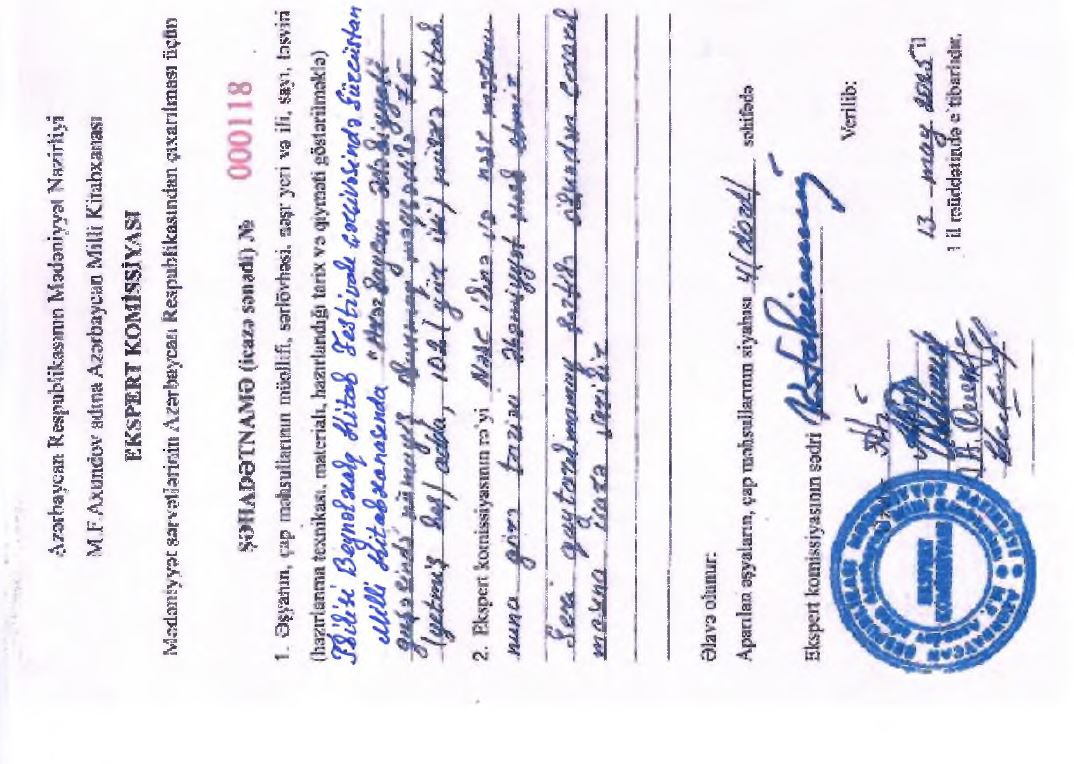 Azərbaycan Respublikasının Mədəniyyət Nazirliyi
M.F.Axundov adına Azərbaycan Milli Kitabxanası
EKSPERT KOMİSSİYASI
Mədəniyyət sərvətlərinin Azərbaycan Respublikasından çıxarılması üçün
ŞƏHADƏTNAMƏ (icazə sənədi) № 000118
1. Əşyanın, çap məhsullarının müəllifi, sərlövhəsi, nəşr yeri və ili, sayı, təsviri
(hazırlanma texnikası, materialı, hazırlandığı tarix və qiyməti göstərilməklə)
Tbilisi Beynəlxalq Kitab Festivalı çərçivəsində Gürcüstan
Milli Kitabxanasında "Azərbaycan ədəbiyyatı
guşəsi"ndə nümayiş olunmaq məqsədilə 75
(yetmiş beş) adda, 102 (yüz iki) nüsxə kitab
2. Ekspert komissiyasının rə'yi Nəşr ilinə və nəşr məzmu
nuna görə tarixi əhəmiyyət kəsb etmir
Geri qaytarılmamaq şərtilə ölkədən çıxarıl
masına icazə verilir
Əlavə olunur:
Aparılan əşyaların, çap məhsullarının siyahısı 4 (dörd) səhifədə
Ekspert komissiyasının sədri
Verilib:
13 may 2025 il
1 il müddətində e'tibarlıdır.
EKSPERT